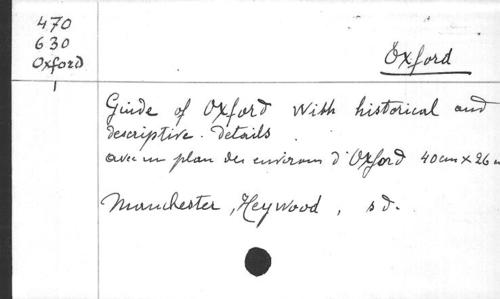 470
630
Oxford
Oxford
1
Guide of Oxford with historical and
descriptive. details
avec un plan des environs d'Oxford 40cm x 26
Manchester, Heywood, sd.